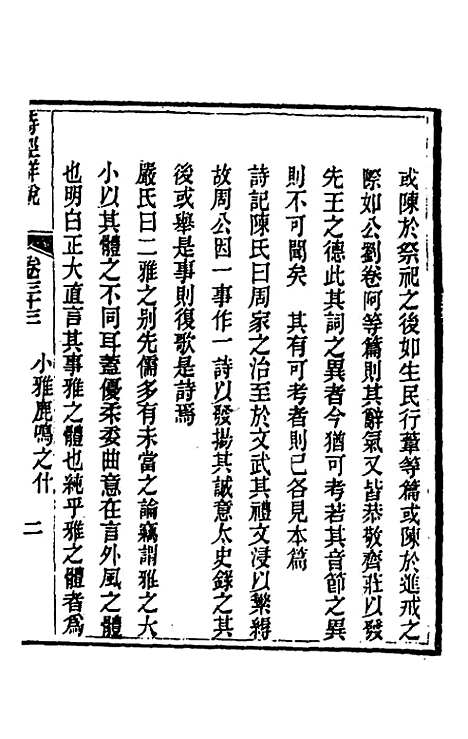 或陳於祭祀之後如生民行葦等篇或陳於進戒之
際如公劉卷阿等篇則其辭氣又皆恭敬齊莊以發
先王之德此其詞之異者今猶可考若其音節之異
則不可聞矣　其有可考者則已各見本篇
詩記陳氏曰周家之治至於文武其禮文浸以縟
故周公因一事作一詩以發揚其誠意太史錄之其
後或舉是事則復歌是詩焉
嚴氏曰二雅之别先儒多有未當之論竊謂雅之大
小以其體之不同耳蓋優柔委曲意在言外風之體
也明白正大直言其事雅之體也純乎雅之體者爲
詩經詳說　卷三十三　小雅鹿鳴之什　二